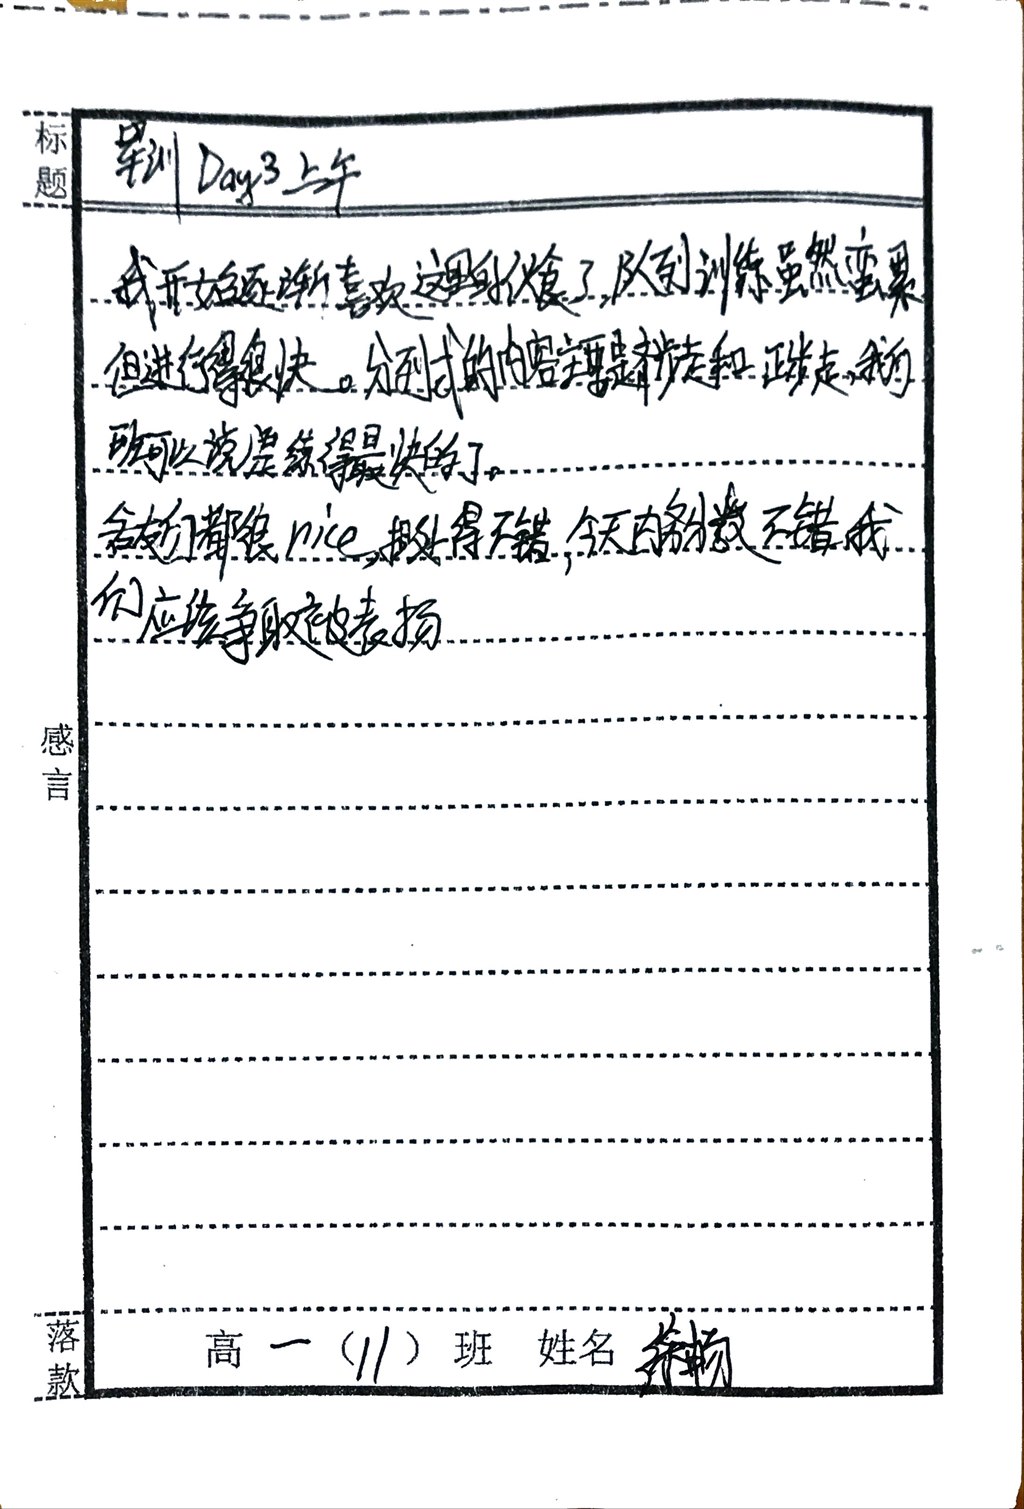 标题
军训 Day3 上午
我开始逐渐喜欢这里的伙食了,队列训练虽然蛮累
但进行得很快。分列式的内容主要是齐步走和正步走,我们
班可以说是练得最快的了。
舍友们都很nice,相处得不错,今天内务分数不错,我
们应该争取被表扬
感言
落款
高一(11)班 姓名 徐畅